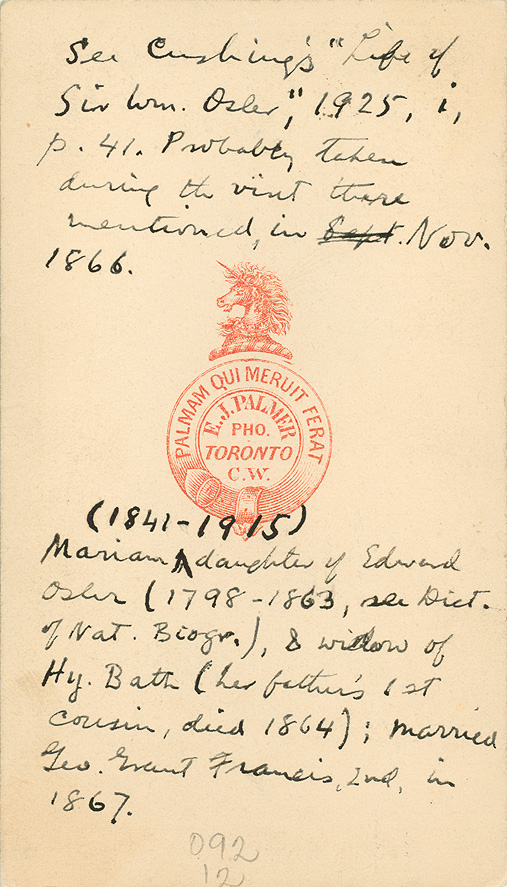 See Cushing's "Life of
Sir Wm. Osler," 1925, i,
p. 41. Probably taken
during the visit there
mentioned, in Sept. Nov.
1866.
PALMAM QUI MERUIT FERAT
E.J. PALMER
PHO.
TORONTO
C.W.
(1841-1915)
Mariam ∧ daughter of Edward
Osler (1798-1863, see Dict.
of Nat. Biogr.), & widow of
Hy. Bath (her father's 1st
cousin, died 1864); married
Geo. Grant Francis, 2nd, in
1867.
092
12